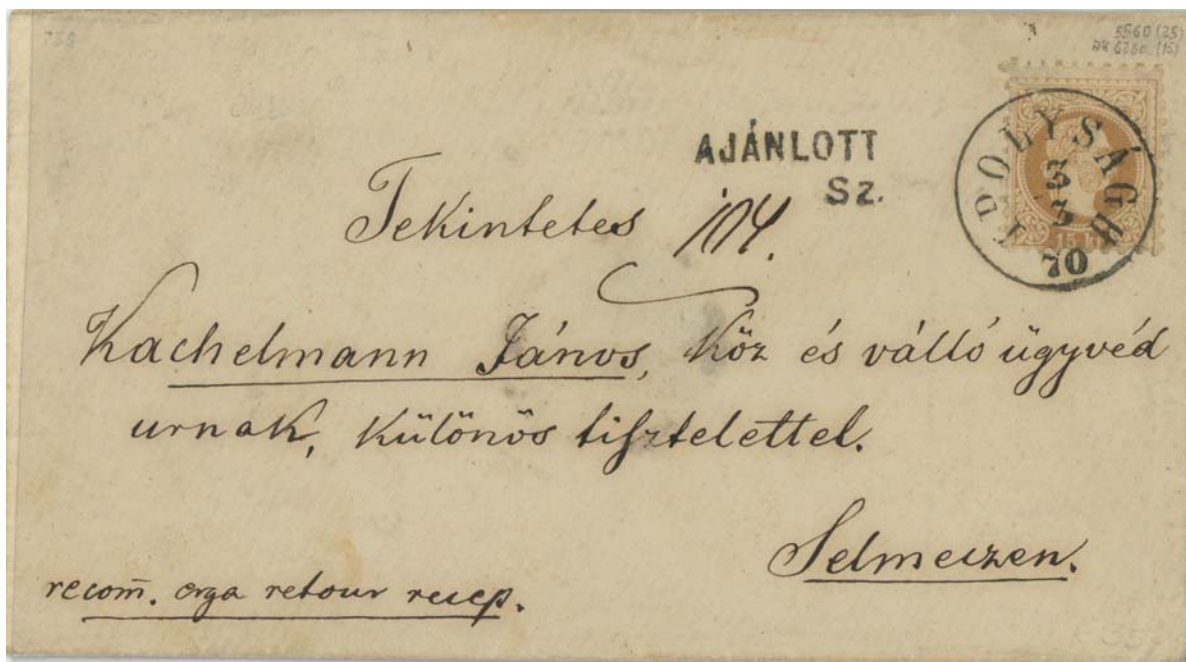 5560 (25)
6260. (15)
AJÁNLOTT
Sz.
IPOLYSÁG
3
3
70
15 k
Tekintetes
104.
Kachelmann János, köz és válló ügyvéd
urnak, különös tisztelettel.
Selmeczen.
recom̄. erga retour recep.